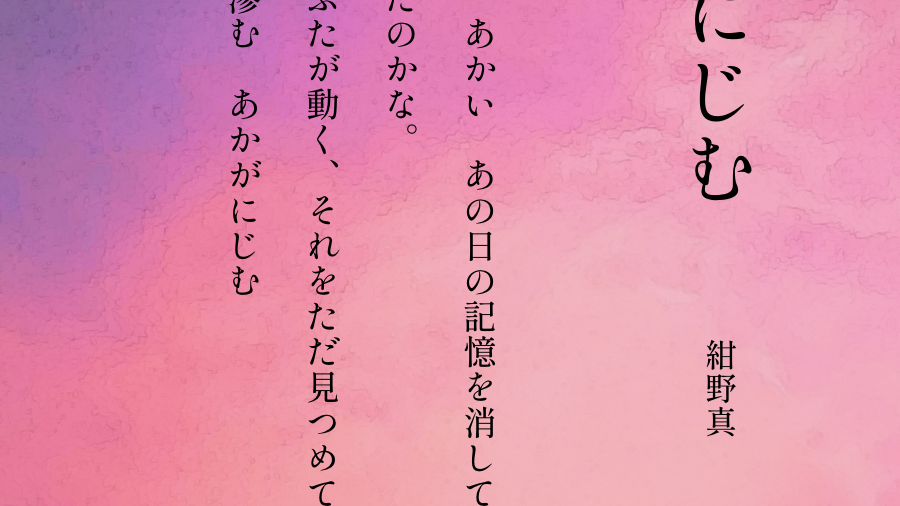 にじむ
紺野真
あかい　あの日の記憶を消して
たのかな。
ぶたが動く、それをただ見つめて
滲む　あかがにじむ